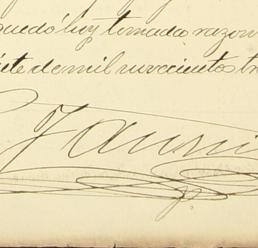 quedó hoy tomada razon
siete de mil novecientos tr